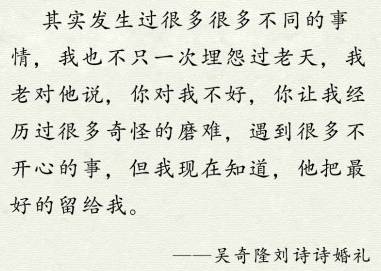 其实发生过很多很多不同的事
情，我也不只一次埋怨过老天，我
老对他说，你对我不好，你让我经
历过很多奇怪的磨难，遇到很多不
开心的事，但我现在知道，他把最
好的留给我。
——吴奇隆刘诗诗婚礼